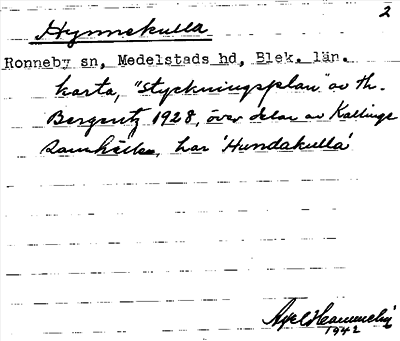 2
Hynnekulla
Ronneby sn, Medelstads hd, Blek. län.
karta, "styckningsplan" av Th.
Bergentz 1928, över delar av Kallinge
samhälle, har 'Hundakulla'
Axel Hammelin
1942